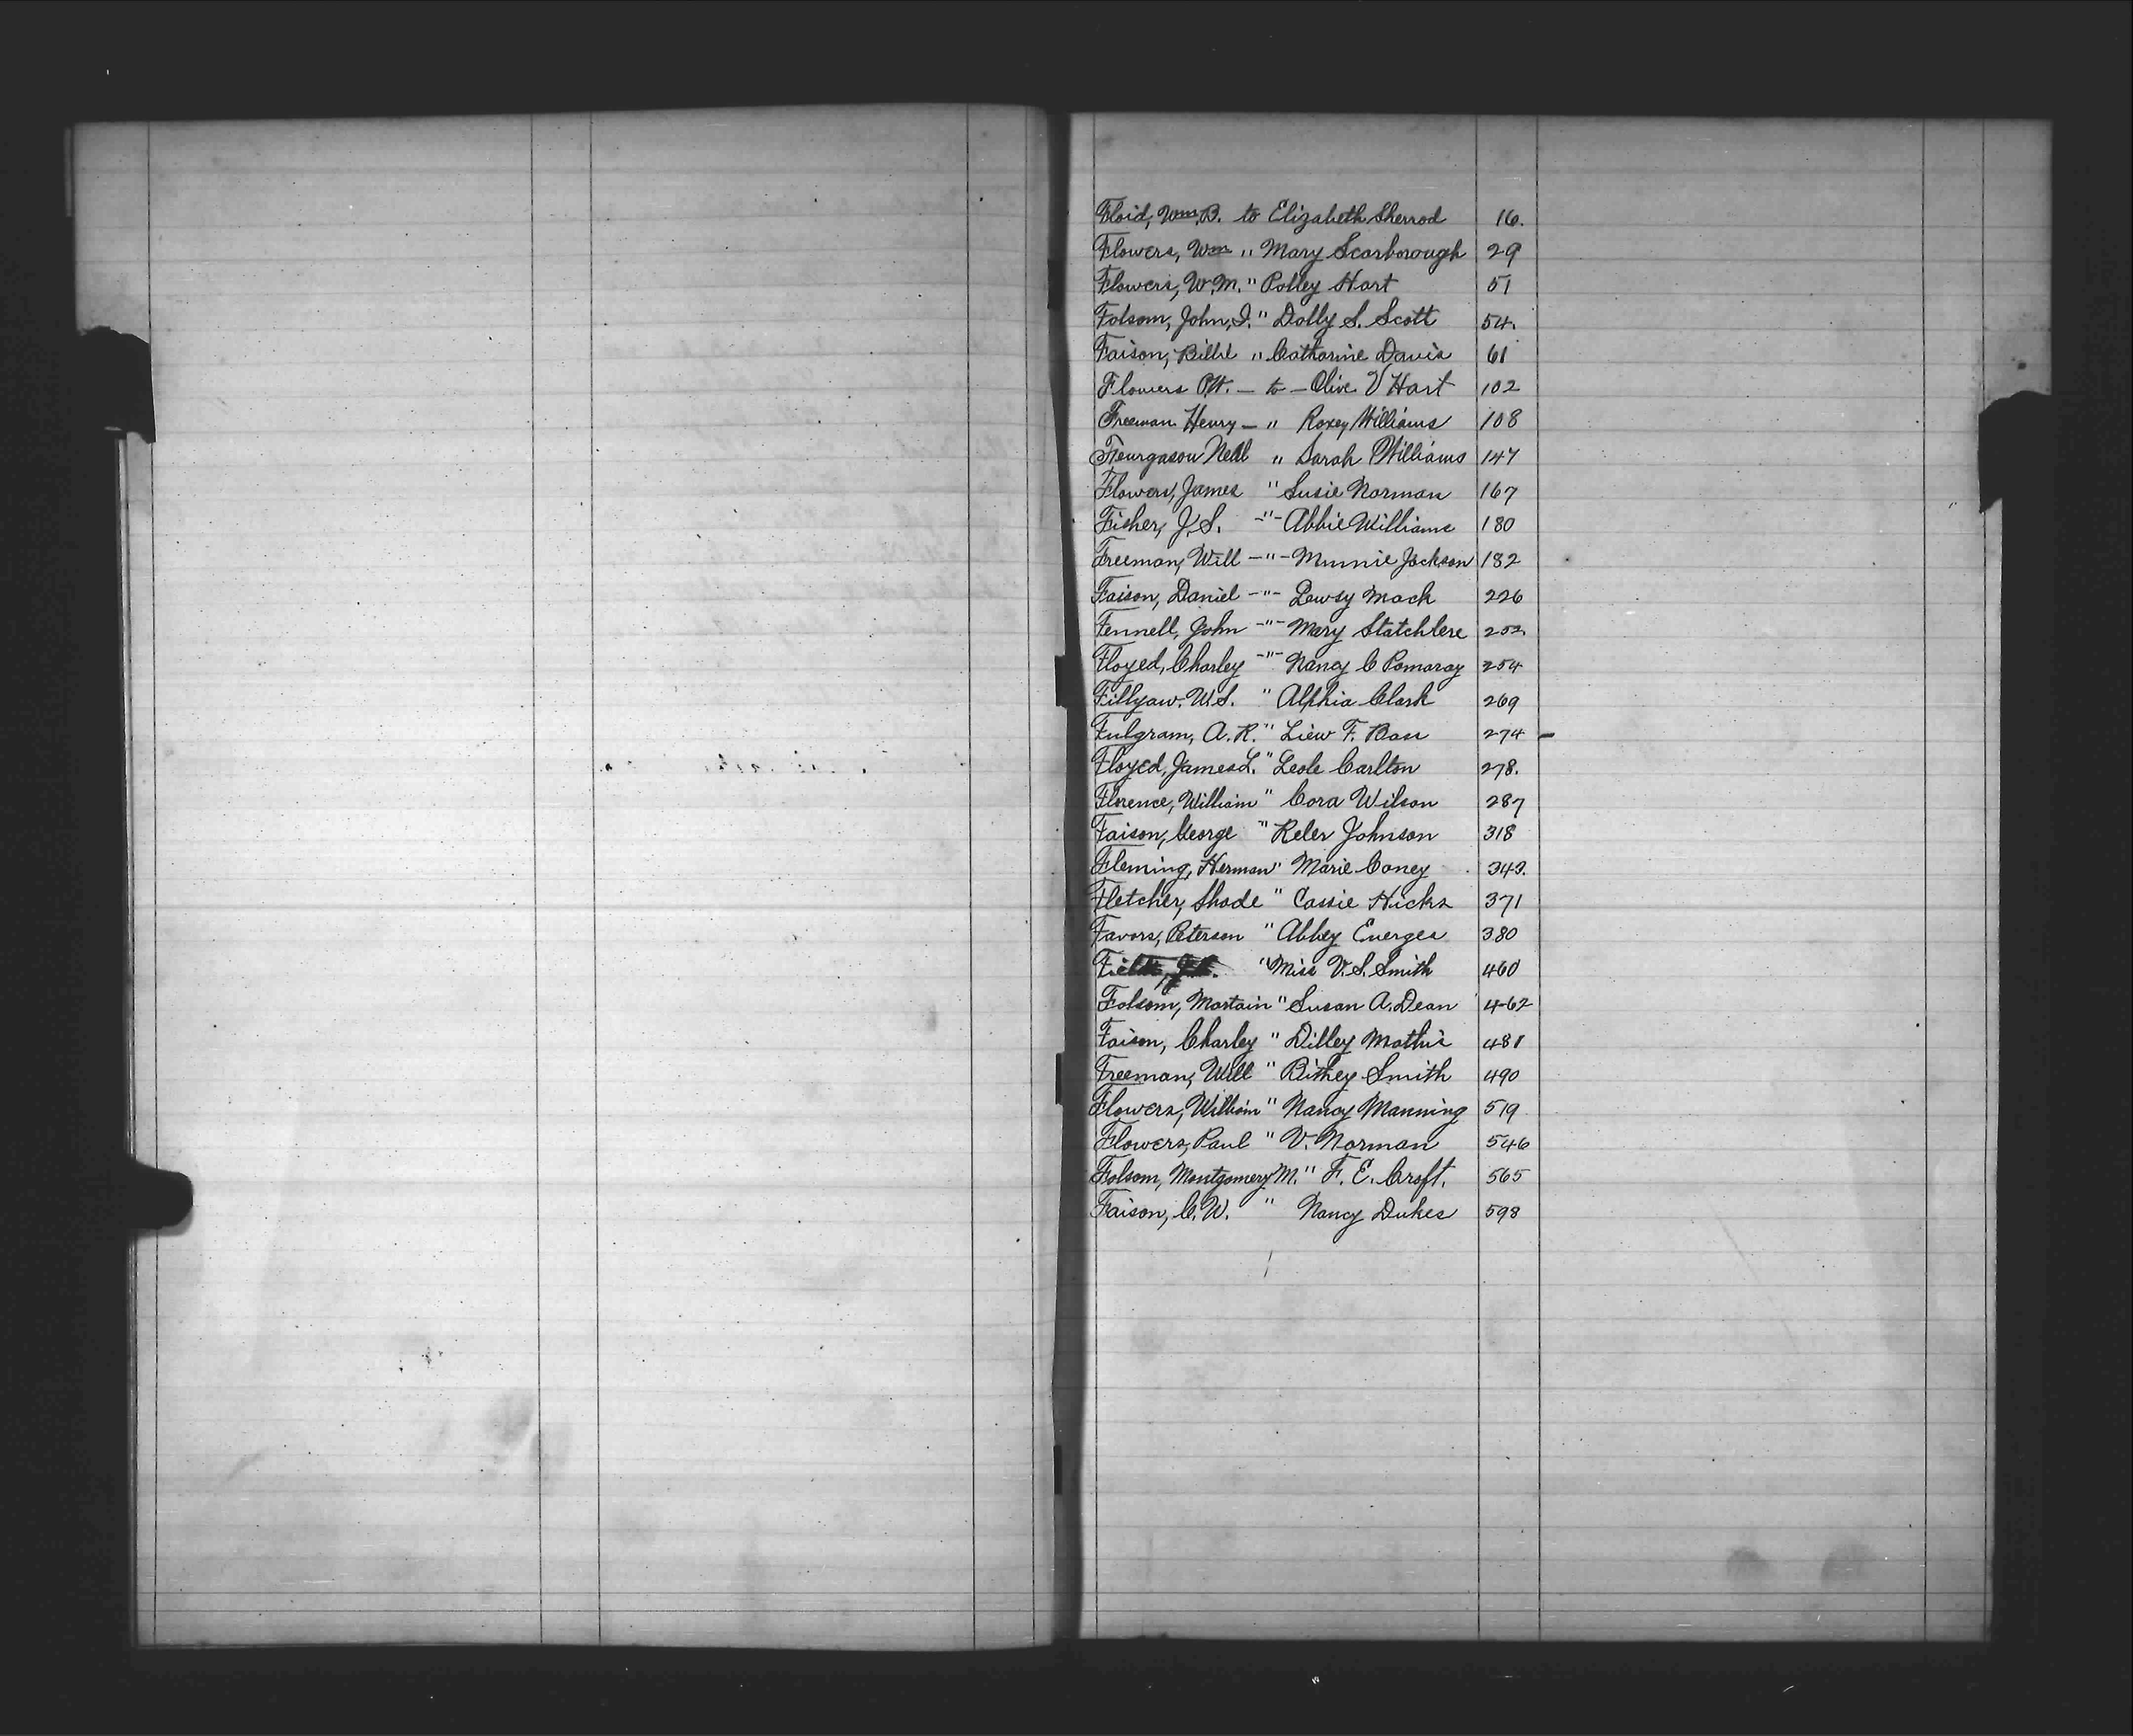 Floid, Wm. B. to Elizabeth Sherrod 16.
Flowers, Wm " Mary Scarborough 29
Flowers, W.M. " Polley Hart 51
Folsom, John, I. " Dolly S. Scott 54.
Faison, Billie " Catharine Davis 61
Flowers P.H. — to — Olive V Hart 102
Freeman Henry — " Roxey Williams 108
Feurgason Nell " Sarah Williams 147
Flowers, James " Susie Norman 167
Fisher, J.S. —"— Abbie Williams 180
Freeman, Will —"— Minnie Jackson 182
Faison, Daniel —"— Lewsy Mack 226
Fennell, John —"— Mary Statchlere 252
Floyed, Charley —"— Nancy C Pomaray 254
Fillyaw. W.S. " Alphia Clark 269
Fulgram, A.R. " Liew F. Bass 274 -
Floyed, James L. " Leole Carlton 278.
Florence, William " Cora Wilson 287
Faison, George " Reler Johnson 318
Fleming, Herman " Marie Coney 343.
Fletcher, Shade " Cassie Hicks 371
Favors, Peterson " Abbey Energes 380
" Miss V.S. Smith 460
Folsom, Martain " Susan A. Dean 462
Faison, Charley " Dilley Mathis 481
Freeman, Will " Bithey Smith 490
Flowers, William " Nancy Manning 519
Flowers, Paul " V. Norman 546
Folsom, Montgomery M. " F. E. Croft. 565
Faison, C.W. " Nancy Dukes 598